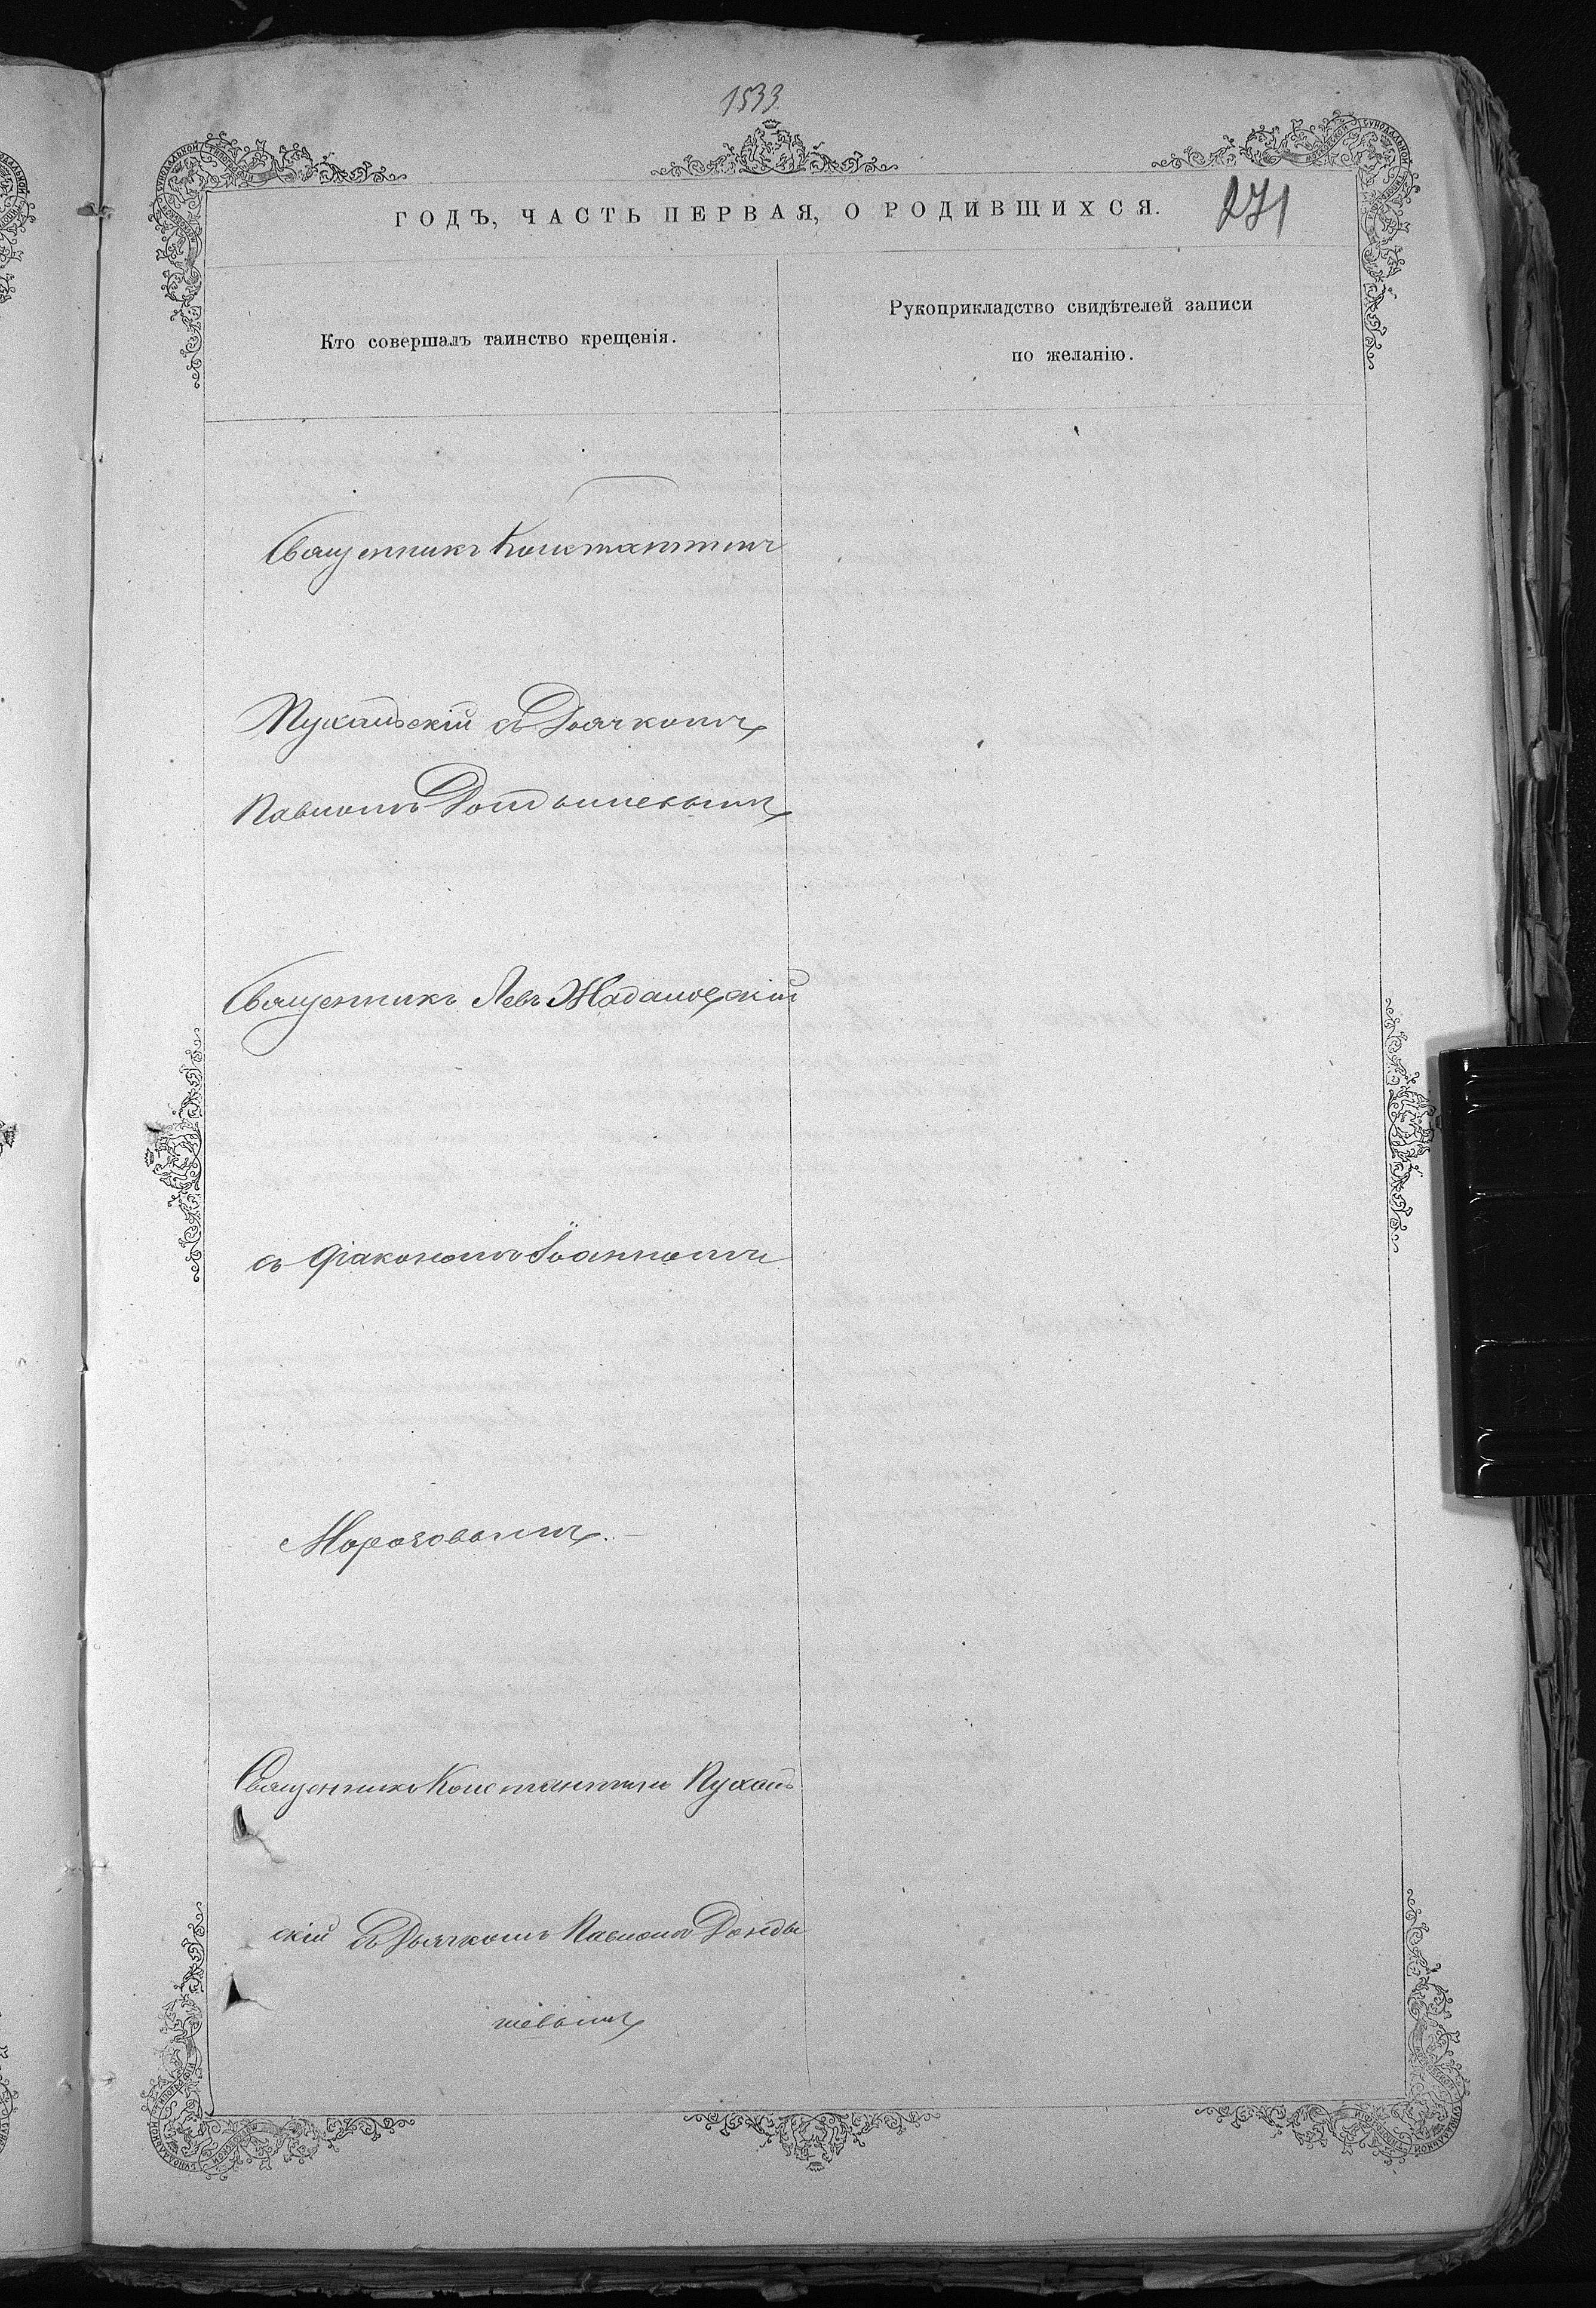 1533
ГОДЪ, ЧАСТЬ ПЕРВАЯ, О РОДИВШИХСЯ.
271
Кто совершалъ таинство крещенія.
Рукоприкладство свидѣтелей записи
по желанію.
Священникъ Константинъ
Пухальскій съ Дьячкомъ
Павломъ
Священникъ Левъ Жадановскій
съ Діакономъ Іоанномъ
Морозовымъ.
Священникъ Константинъ Пухаль
скій съ Дьячкомъ Павломъ
шевымъ